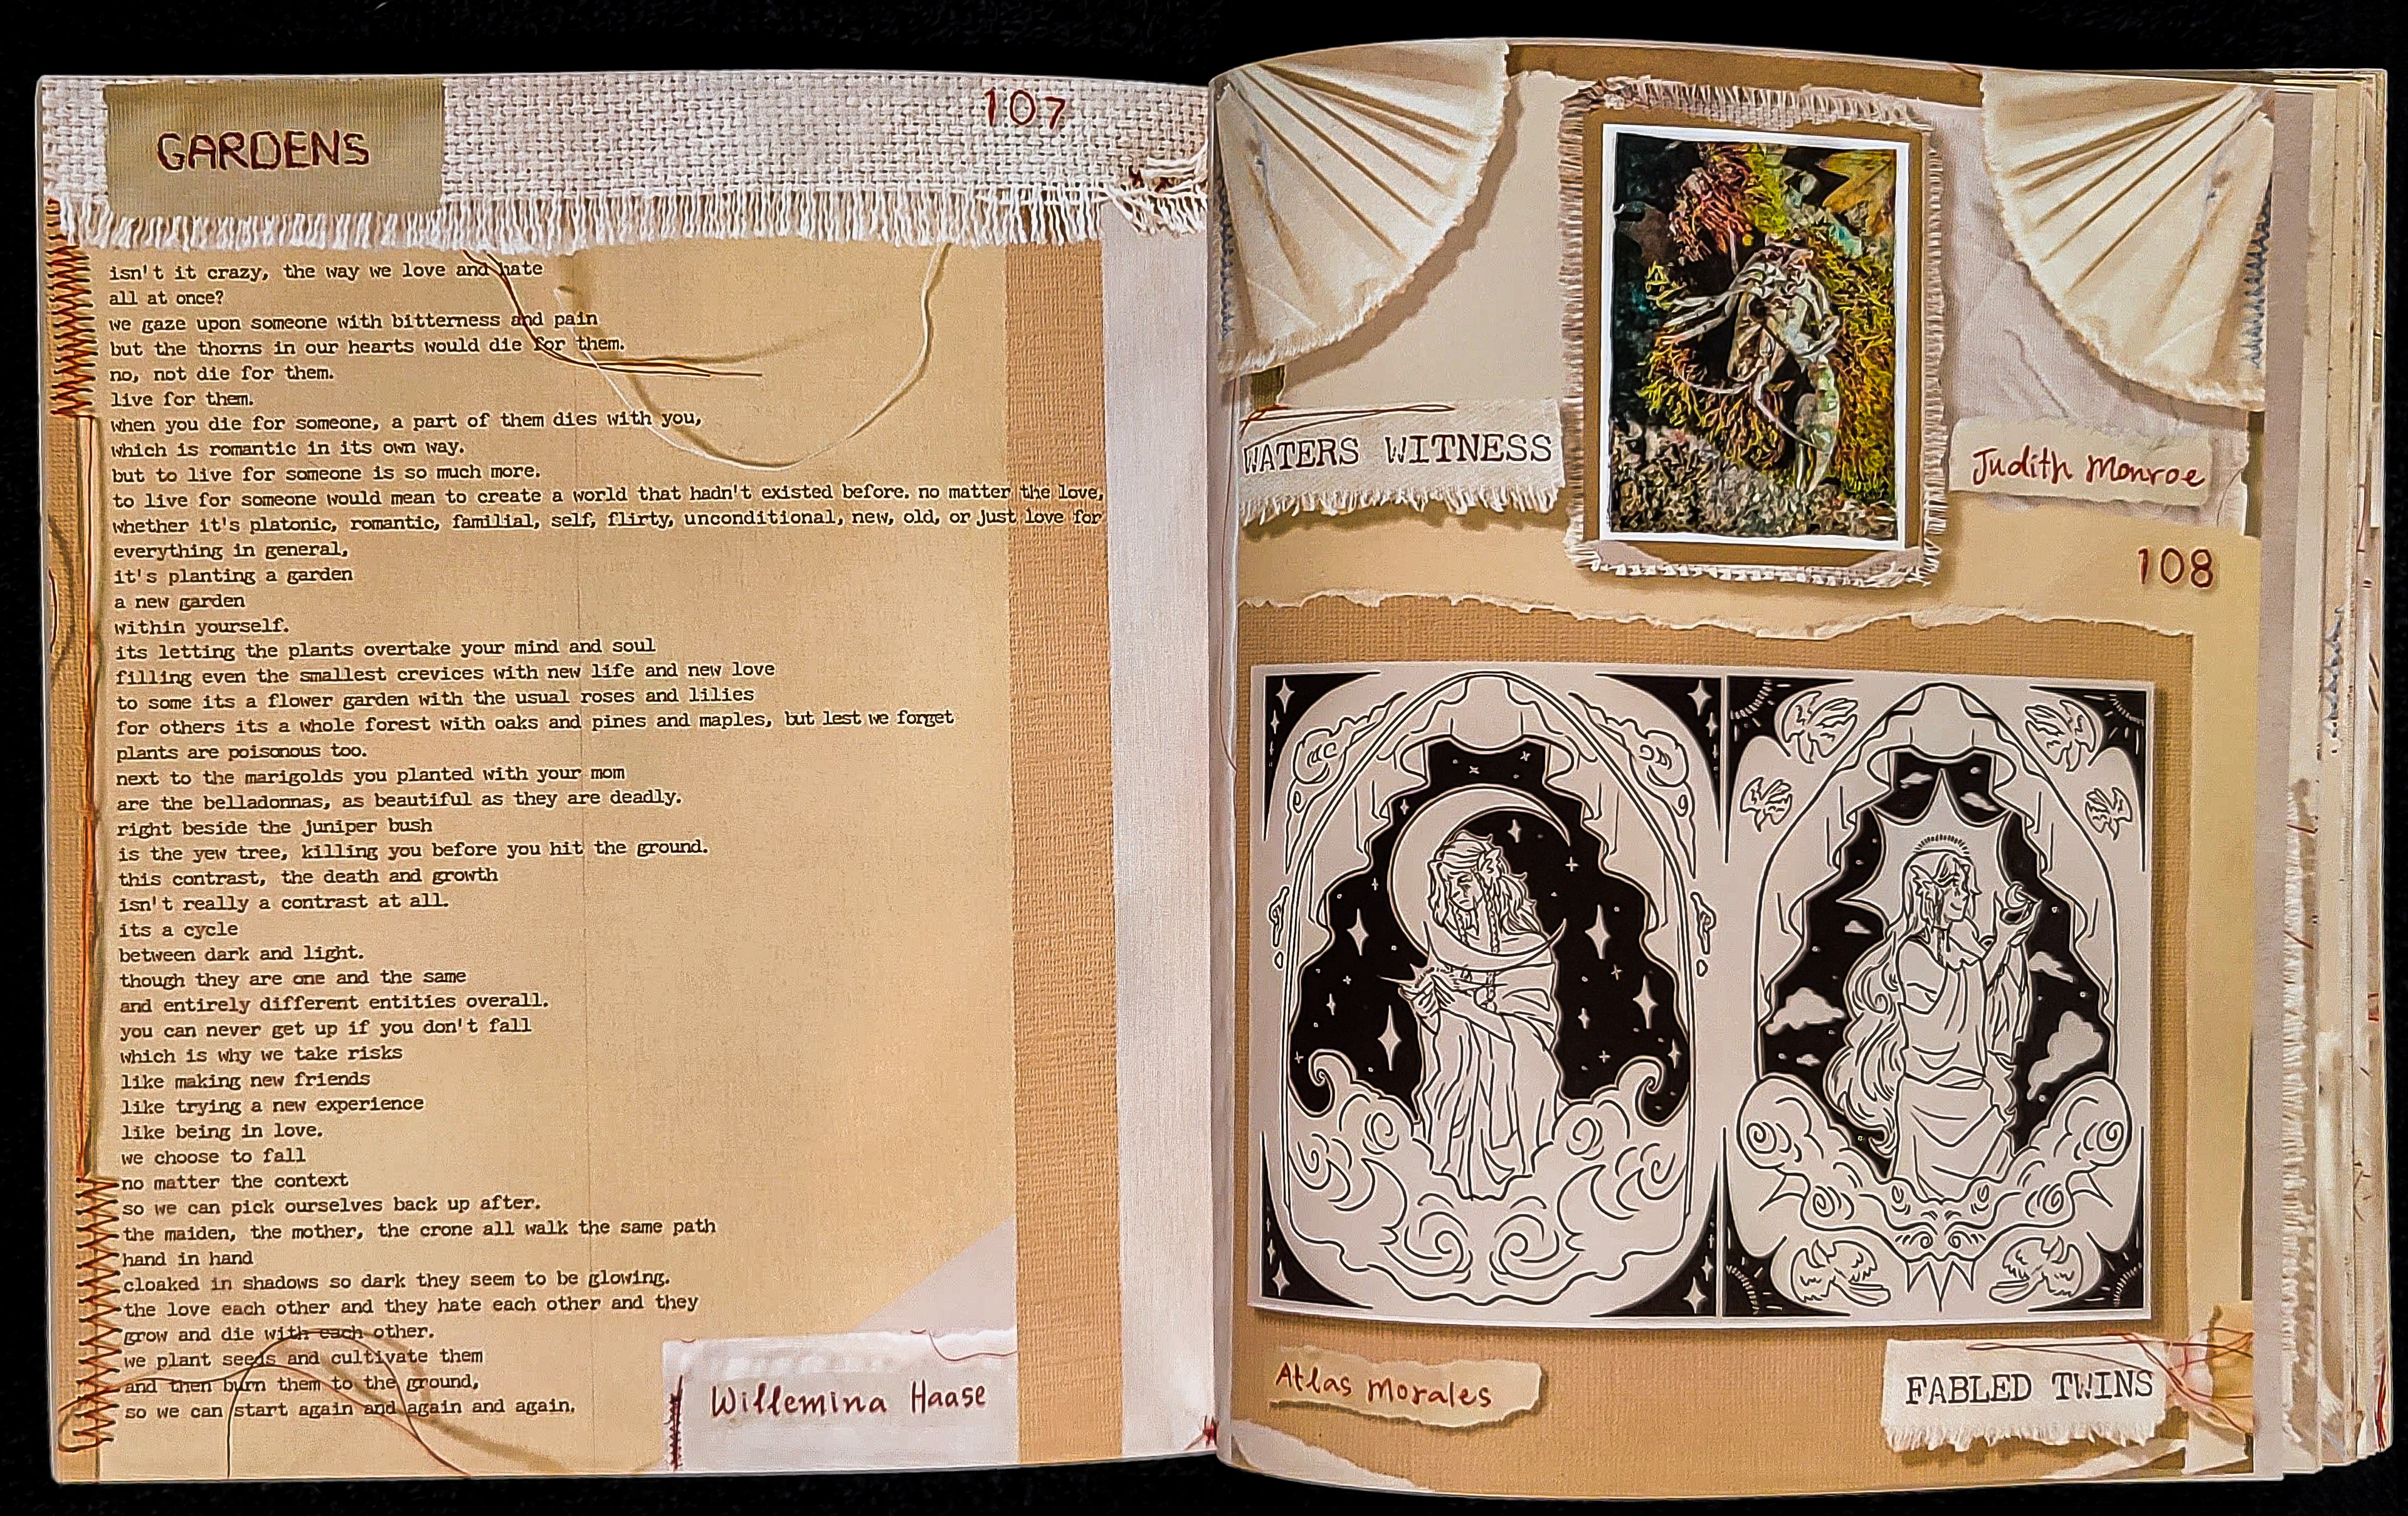 GARDENS
107
isn't it crazy, the way we love and hate
all at once?
we gaze upon someone with bitterness and pain
but the thorns in our hearts would die for them.
no, not die for them.
live for them.
when you die for someone, a part of them dies with you,
which is romantic in its own way.
but to live for someone is so much more.
to live for someone would mean to create a world that hadn't existed before. no matter the love,
whether it's platonic, romantic, familial, self, flirty, unconditional, new, old, or just love for
everything in general,
it's planting a garden
a new garden
within yourself.
its letting the plants overtake your mind and soul
filling even the smallest crevices with new life and new love
to some its a flower garden with the usual roses and lilies
for others its a whole forest with oaks and pines and maples, but lest we forget
plants are poisonous too.
next to the marigolds you planted with your mom
are the belladonnas, as beautiful as they are deadly.
right beside the juniper bush
is the yew tree, killing you before you hit the ground.
this contrast, the death and growth
isn't really a contrast at all.
its a cycle
between dark and light.
though they are one and the same
and entirely different entities overall.
you can never get up if you don't fall
which is why we take risks
like making new friends
like trying a new experience
like being in love.
we choose to fall
no matter the context
so we can pick ourselves back up after.
the maiden, the mother, the crone all walk the same path
hand in hand
cloaked in shadows so dark they seem to be glowing.
the love each other and they hate each other and they
grow and die with each other.
we plant seeds and cultivate them
and then burn them to the ground,
so we can start again and again and again.
Willemina Haase
WATERS WITNESS
Judith Monroe
108
Atlas Morales
FABLED TWINS